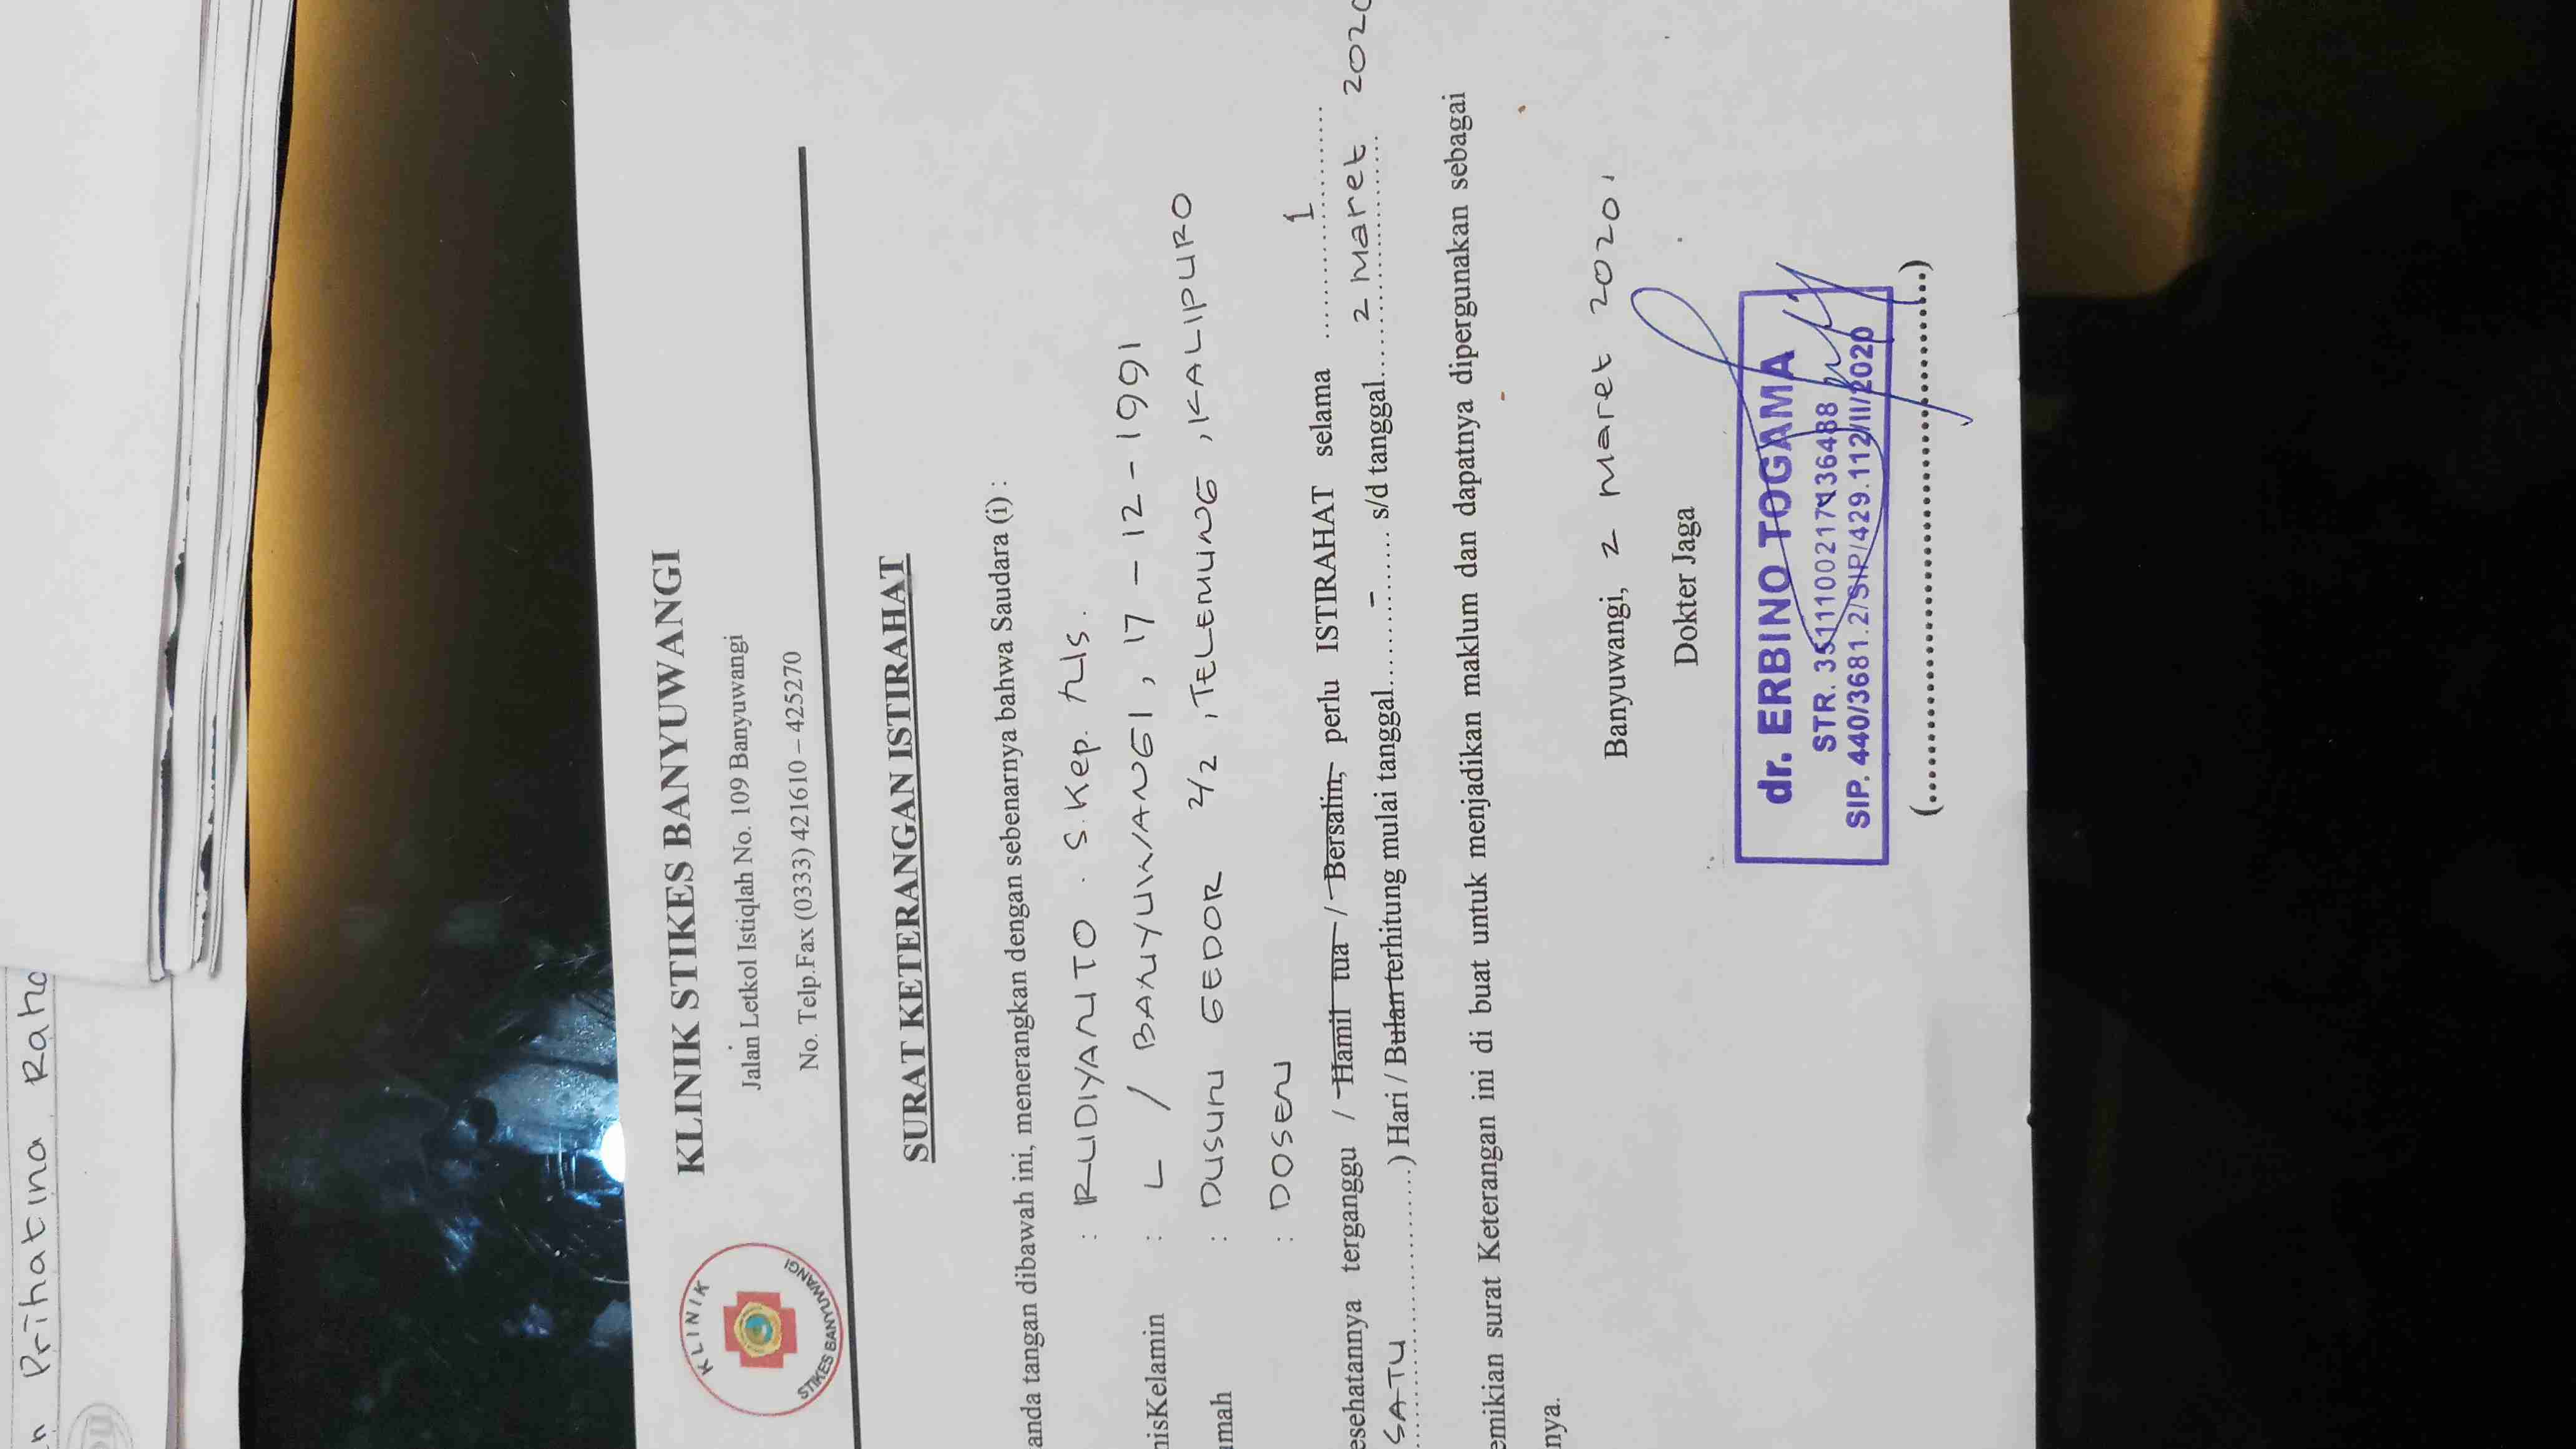 Prihatina
KLINIK
STIKES BANYUWANGI
KLINIK STIKES BANYUWANGI
Jalan Letkol Istiqlah No. 109 Banyuwangi
No. Telp.Fax (0333) 421610 – 425270
SURAT KETERANGAN ISTIRAHAT
anda tangan dibawah ini, menerangkan dengan sebenarnya bahwa Saudara (i) :
: RUDIYANTO . S.Kep. Ns.
nisKelamin : L / BANYUWANGI, 17 - 12 - 1991
mah : DUSUN GEDOR 2/2, TELEMUNG, KALIPURO
: DOSEN
esehatannya terganggu / Hamil tua / Bersalin, perlu ISTIRAHAT selama ......1......
SATU ............) Hari / Bulan terhitung mulai tanggal.......-....... s/d tanggal...2 Maret 2020
emikian surat Keterangan ini di buat untuk menjadikan maklum dan dapatnya dipergunakan sebagai
nya.
Banyuwangi, 2 Maret 2020.
Dokter Jaga
dr. ERBINO TOGAMA
STR. 3511100217136488
SIP. 440/3681.2/SIP/429.112/II/2020
(............................................)